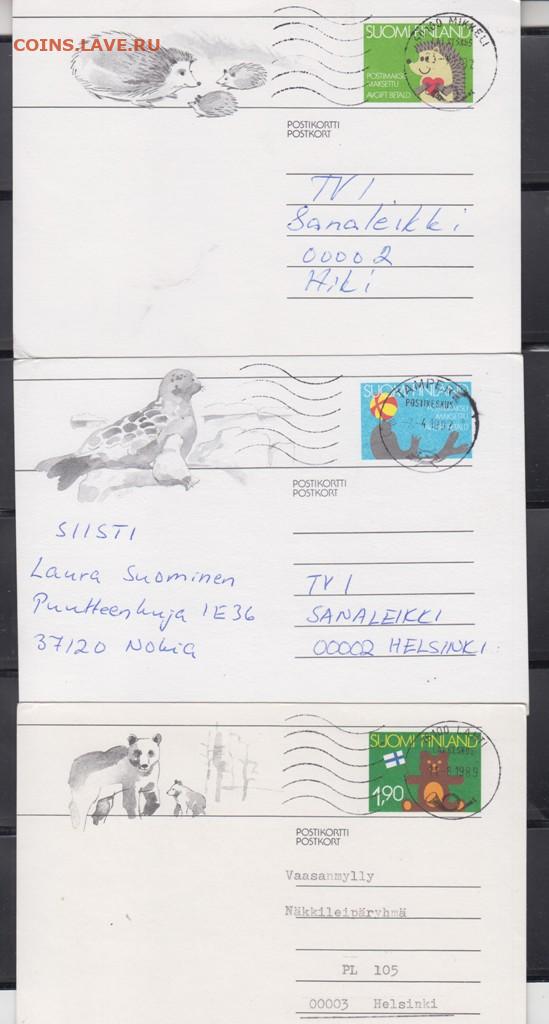 COINS.LAVE.RU
SUOMI FINLAND
MIKKELI
POSTIMAKSU
MAKSETTU
AVGIFT BETALD
POSTIKORTTI
POSTKORT
TV1
Sanaleikki
00002
Hiki
SUOMI FINLAND
TAMPERE
POSTIKESKUS
MAKSETTU
BETALD
POSTIKORTTI
POSTKORT
SIISTI
Laura Suominen
Puutteenkuja 1E36
37120 Nokia
TV1
SANALEIKKI
00002 HELSINKI
SUOMI FINLAND
1989
1,90
POSTIKORTTI
POSTKORT
Vaasanmylly
Näkkileipäryhmä
PL 105
00003 Helsinki